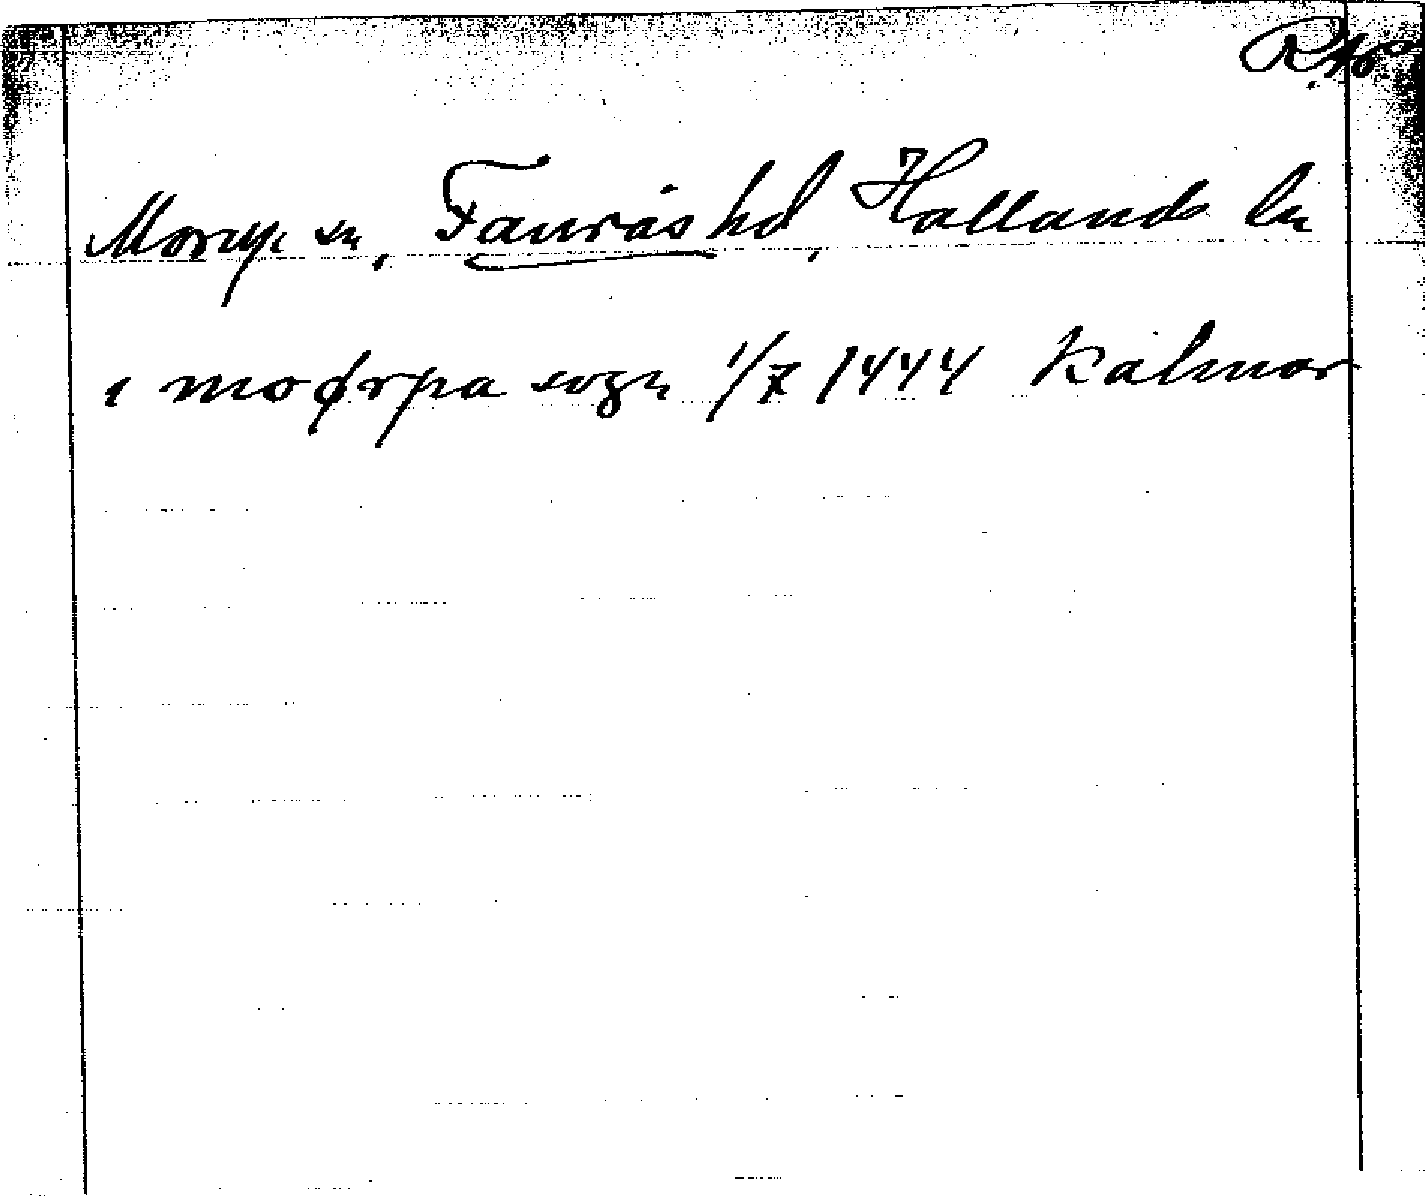 RAp
Morup sn, Faurås hd, Hallands ln
i moørpa sogn 1/7 1444 Kalmar